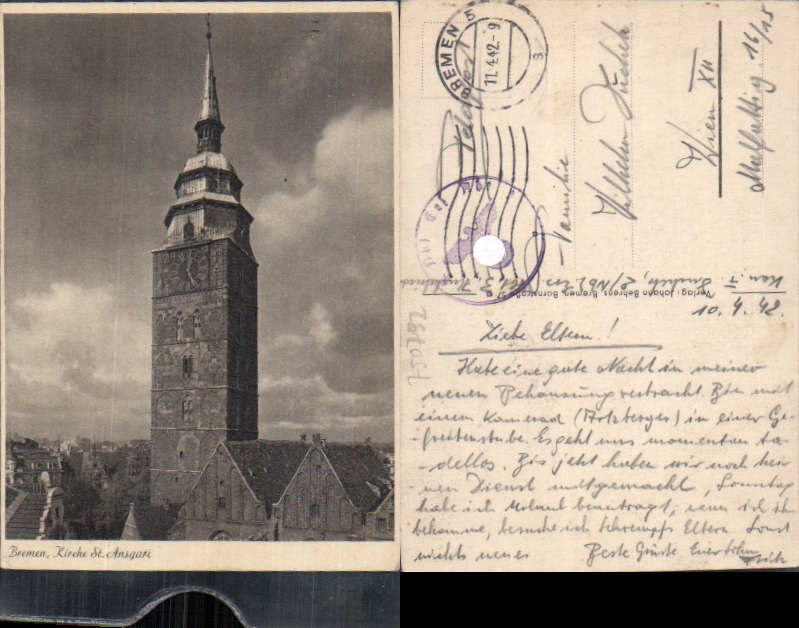 Bremen, Kirche St. Ansgari
BREMEN 5
11.4.42.-9
Feldpost
Familie
Wilhelm
Wien XII
16/15
Verlag: Johann Behrens, Bremen, Bornstraße
10. 4. 42.
Liebe Eltern!
Habe eine gute Nacht in meiner
neuen Behausung verbracht. Bin mit
einem Kamerad (Artzberger) in einer Ge-
freitenstube. Es geht uns momentan ta-
dellos. Bis jetzt haben wir noch kei-
nen Dienst mitgemacht, Sonntag
habe ich Urlaub beantragt, wenn ich ihn
bekomme, besuche ich Schrempfs Eltern. Sonst
nichts neues Beste Grüsse Euer Sohn
Fritz